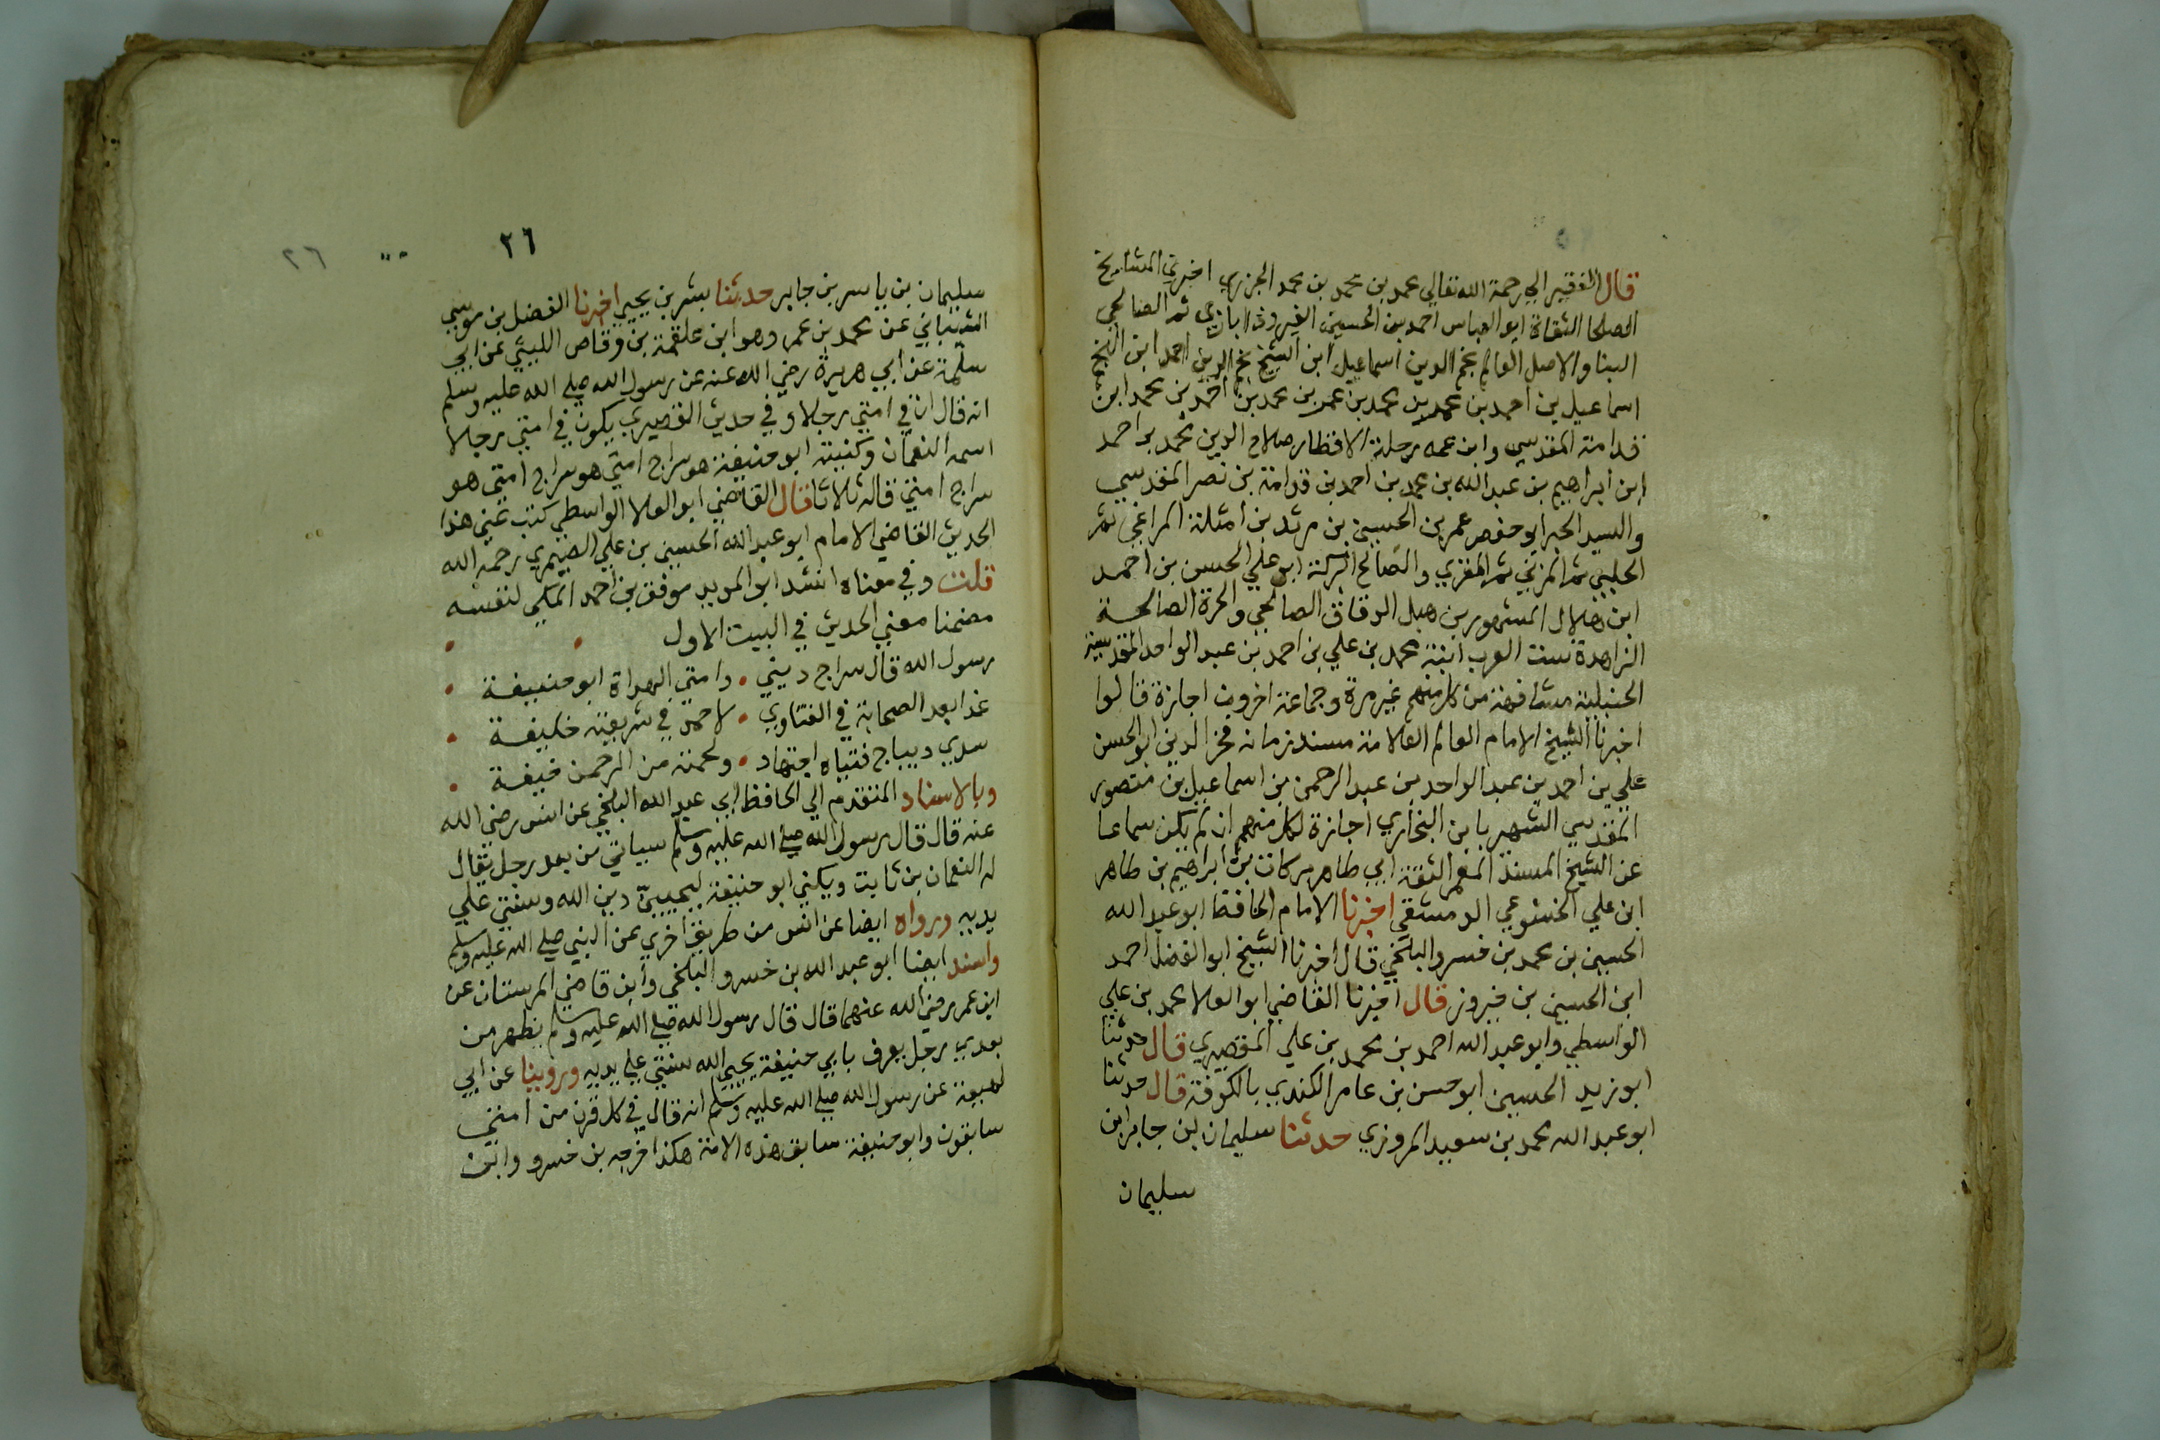 قال الفقير الي رحمة الله تعالي محمد بن محمد بن محمد الجزري اخبرني المشايخ
الصلحا الثقاة ابو العباس احمد بن الحسين الفيروذابازي ثم الصالحي
البنا والاصل العالم نجم الدين اسماعيل ابن الشيخ نجم الدين احمد ابن النجم
اسماعيل بن احمد بن محمد بن محمد بن عمر بن محمد بن احمد بن محمد ابن
قدامة المقدسي وابن عمه رحلة الاقطار صلاح الدين محمد بن احمد
ابن ابراهيم بن عبد الله بن محمد بن احمد بن قدامة بن نصر المقدسي
والسيد الخير ابو حفص عمر بن الحسين بن مرثد بن امثلة المراغي ثم
الحلبي ثم المزني ثم المغزي والصالح البركة ابو علي الحسن بن احمد
ابن هلال المشهور بن هبل الدقاق الصالحي والحرة الصالحة
الزاهدة ست العرب ابنة محمد بن علي بن احمد بن عبد الواحد المقدسية
الحنبلية مشافهة من كل منهم غير مرة وجماعة اخرون اجازة قالوا
اخبرنا الشيخ الامام العالم العلامة مسند زمانه فخر الدين ابو الحسن
علي بن احمد بن عبد الواحد بن عبد الرحمن بن اسماعيل بن منصور
المقدسي الشهير بابن البخاري اجازة لكل منهم ان لم يكن سماعا
عن الشيخ المسند المعمر الثقة ابي طاهر بركات بن ابراهيم بن طاهر
ابن علي الخشوعي الدمشقي اخبرنا الامام الحافظ ابو عبد الله
الحسين بن محمد بن خسرو البلخي قال اخبرنا الشيخ ابو الفضل احمد
ابن الحسين بن خيروز قال اخبرنا القاضي ابو العلا محمد بن علي
الواسطي وابو عبد الله احمد بن محمد بن علي القصيري قال حدثنا
ابو زيد الحسين ابو حسن بن عامر الكندي بالكوفة قال حدثنا
ابو عبد الله محمد بن سعيد المروزي حدثنا سليمان بن جابر ابن
سليمان
٢٦
٢٦
سليمان بن ياسر بن جابر حدثنا بشر بن يحيي اخبرنا الفضل بن موسي
الشيباني عن محمد بن عمر وهو ابن علقمة بن وقاص الليثي عن ابي
سلمة عن ابي هريرة رضي الله عنه عن رسول الله صلي الله عليه وسلم
انه قال ان في امتي رجلا وفي حديث القصيري يكون في امتي رجلا
اسمه النعمان وكنيته ابو حنيفة هو سراج امتي هو سراج امتي هو
سراج امتي قاله ثلاثا قال القاضي ابو العلا الواسطي كتب عني هذا
الحديث القاضي الامام ابو عبد الله الحسين بن علي الصيمري رحمه الله
قلت وفي معناه انشد ابو المويد موفق بن احمد المكي لنفسه
مضمنا معني الحديث في البيت الاول
رسول الله قال سراج ديني • وامتي الهداة ابو حنيفة
غدا بعد الصحابة في الفتاوي • لاحمد في شريعته خليفة
سدي ديباج فتياه اجتهاد • ولحمته من الرحمن خيفة
وبالاسناد المتقدم الي الحافظ ابي عبد الله البلخي عن انس رضي الله
عنه قال قال رسول الله صلي الله عليه وسلم سياتي من بعد رجل يقال
له النعمان بن ثابت ويكني ابو حنيفة ليحيين دين الله وسنتي علي
يديه ورواه ايضا عن انس من طريق اخري عن النبي صلي الله عليه وسلم
واسند ايضا ابو عبد الله بن خسرو البلخي وابن قاضي المرستان عن
ابن عمر رضي الله عنهما قال قال رسول الله صلي الله عليه وسلم يظهر من
بعدي رجل يعرف بابي حنيفة يحيي الله سنتي علي يديه وروينا عن ابي
لهيعة عن رسول الله صلي الله عليه وسلم انه قال في كل قرن من امتي
سابقون وابو حنيفة سابق هذه الامة هكذا اخرجه بن خسرو وابن